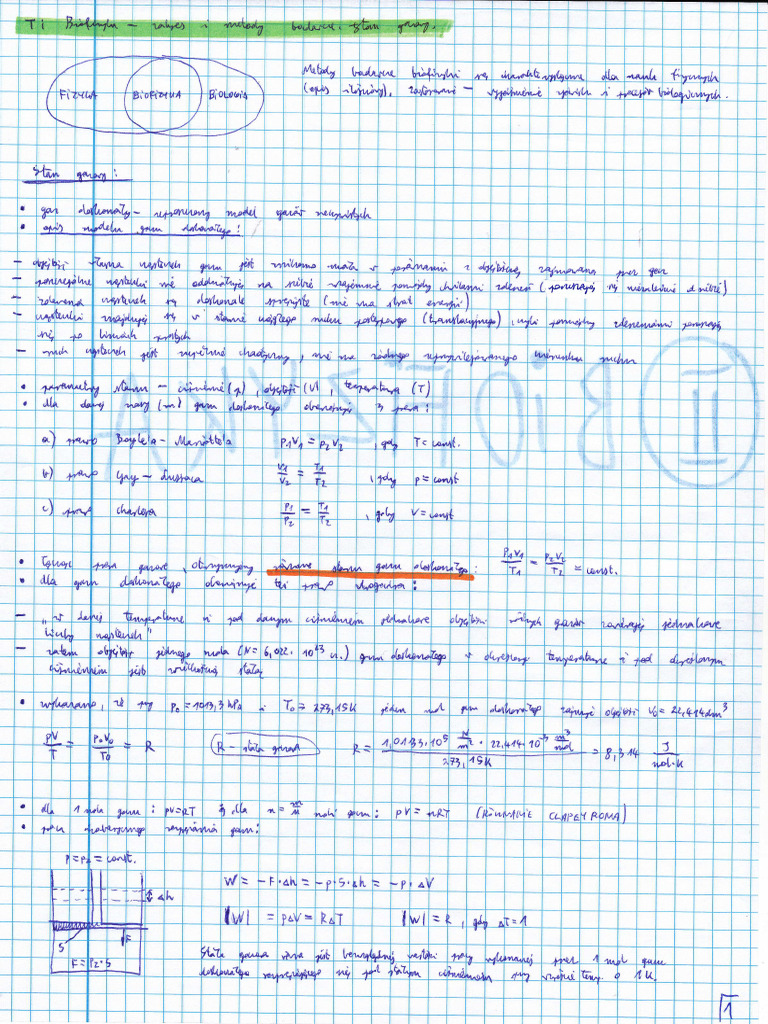 T1 Biofizyka – zakres i metody badawcze. Stan gazowy.
FIZYKA BIOFIZYKA BIOLOGIA
Metody badawcze biofizyki są charakterystyczne dla nauk fizycznych
(opis ilościowy), zastosowanie – wyjaśnienie zjawisk i procesów biologicznych.
Stan gazowy:
• gaz doskonały – uproszczony model gazów rzeczywistych
• opis modelu gazu doskonałego:
– objętość własna cząsteczek gazu jest znikomo mała w porównaniu z objętością zajmowaną przez gaz
– poszczególne cząsteczki nie oddziałują na siebie wzajemnie pomiędzy chwilami zderzeń (poruszają się niezależnie od siebie)
– zderzenia cząsteczek są doskonale sprężyste (nie ma strat energii)
– cząsteczki znajdują się w stanie ciągłego ruchu postępowego (translacyjnego), czyli pomiędzy zderzeniami poruszają
się po liniach prostych
– ruch cząsteczek jest zupełnie chaotyczny, nie ma żadnego uprzywilejowanego kierunku ruchu
II BIOFIZYKA
• parametry stanu – ciśnienie (p), objętość (V), temperatura (T)
• dla danej masy (m) gazu doskonałego obowiązują 3 prawa:
a) prawo Boyle'a – Mariotte'a p₁V₁ = p₂V₂ , gdy T = const.
b) prawo Gay – Lussaca V1/V2 = T1/T2 , gdy p = const
c) prawo Charlesa P1/P2 = T1/T2 , gdy V = const
• łącząc prawa gazowe, otrzymujemy równanie stanu gazu doskonałego: P1V1/T1 = P2V2/T2 = const.
• dla gazu doskonałego obowiązuje też prawo Avogadra:
– „w danej temperaturze i pod danym ciśnieniem jednakowe objętości różnych gazów zawierają jednakowe
liczby cząsteczek"
– zatem objętość jednego mola (N = 6,022 · 10²³ cz.) gazu doskonałego w określonej temperaturze i pod określonym
ciśnieniem jest wielkością stałą
• wykazano, że przy p₀ = 1013,3 hPa i T₀ = 273,15 K jeden mol gazu doskonałego zajmuje objętość V₀ = 22,414 dm³
pV/T = p₀V₀/T₀ = R R – stała gazowa R = 1,0133 · 10⁵ N/m² · 22,414 · 10⁻³ m³/mol / 273,15 K = 8,314 J/mol·K
• dla 1 mola gazu: pV = RT dla n = m/M moli gazu: pV = nRT (RÓWNANIE CLAPEYRONA)
• praca izobarycznego rozprężania gazu:
p = p₂ = const.
Δh
S
F
F = P₂ · S
W = –F·Δh = –p·S·Δh = –p·ΔV
|W| = pΔV = RΔT |W| = R , gdy ΔT = 1
Stała gazowa równa jest bezwzględnej wartości pracy wykonanej przez 1 mol gazu
doskonałego rozprężającego się pod stałym ciśnieniem przy wzroście temp. o 1 K.
1